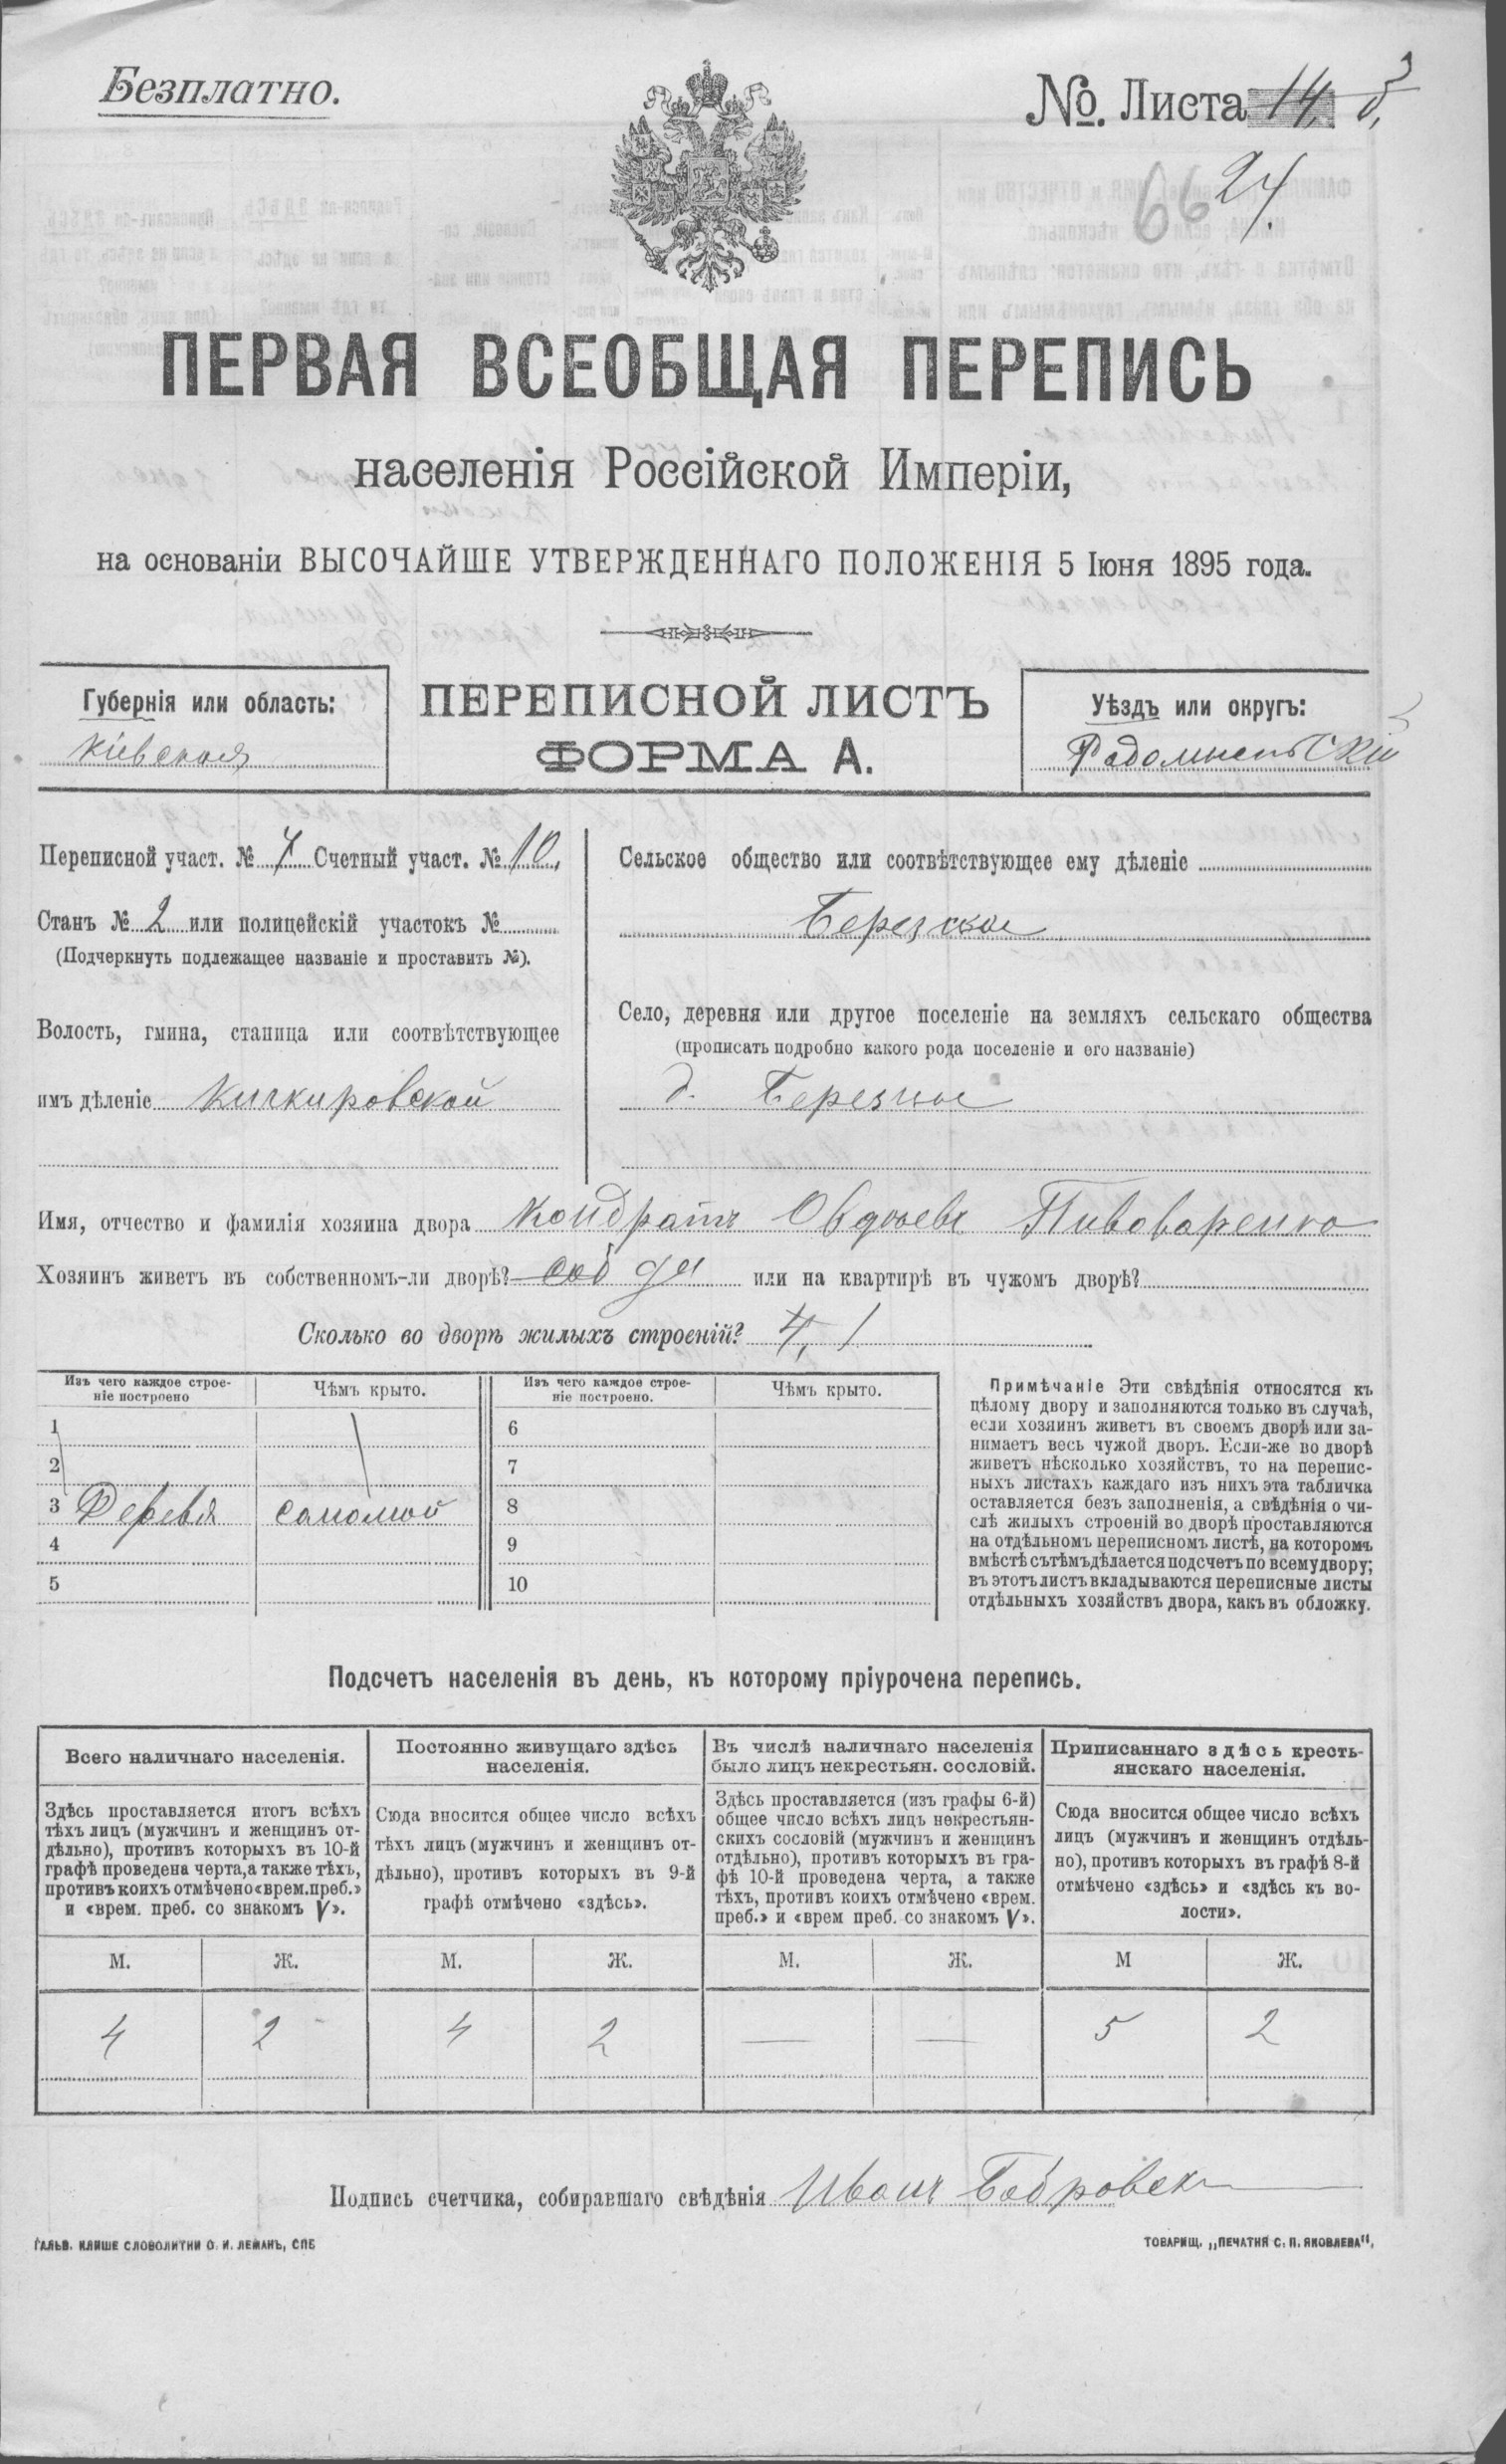 Безплатно.
№. Листа 14,
66 24.
ПЕРВАЯ ВСЕОБЩАЯ ПЕРЕПИСЬ
населенія Россійской Имперіи,
на основаніи ВЫСОЧАЙШЕ УТВЕРЖДЕННАГО ПОЛОЖЕНІЯ 5 Іюня 1895 года.
Губернія или область:
Кіевская
ПЕРЕПИСНОЙ ЛИСТЪ
ФОРМА А.
Уѣздъ или округъ:
Радомысльскій
Переписной участ. № 7 Счетный участ. № 10,
Станъ № 2 или полицейскій участокъ №
(Подчеркнуть подлежащее названіе и проставить №).
Волость, гмина, станица или соотвѣтствующее
имъ дѣленіе Кичкировской
Сельское общество или соотвѣтствующее ему дѣленіе
Березское
Село, деревня или другое поселеніе на земляхъ сельскаго общества
(прописать подробно какого рода поселеніе и его названіе)
д. Березцы
Имя, отчество и фамилія хозяина двора Кондратъ Овдѣевъ Пивоваренко
Хозяинъ живетъ въ собственномъ-ли дворѣ? соб да или на квартирѣ въ чужомъ дворѣ?
Сколько во дворѣ жилыхъ строеній? 4, 1
Изъ чего каждое строе-
ніе построено
Чѣмъ крыто.
Изъ чего каждое строе-
ніе построено.
Чѣмъ крыто.
1 6
2 7
3 Деревя соломой 8
4 9
5 10
Примѣчаніе Эти свѣдѣнія относятся къ
цѣлому двору и заполняются только въ случаѣ,
если хозяинъ живетъ въ своемъ дворѣ или за-
нимаетъ весь чужой дворъ. Если-же во дворѣ
живетъ нѣсколько хозяйствъ, то на перепис-
ныхъ листахъ каждаго изъ нихъ эта табличка
оставляется безъ заполненія, а свѣдѣнія о чи-
слѣ жилыхъ строеній во дворѣ проставляются
на отдѣльномъ переписномъ листѣ, на которомъ
вмѣстѣ съ тѣмъ дѣлается подсчетъ по всему двору;
въ этотъ листъ вкладываются переписные листы
отдѣльныхъ хозяйствъ двора, какъ въ обложку.
Подсчетъ населенія въ день, къ которому пріурочена перепись.
Всего наличнаго населенія.
Здѣсь проставляется итогъ всѣхъ
тѣхъ лицъ (мужчинъ и женщинъ от-
дѣльно), противъ которыхъ въ 10-й
графѣ проведена черта, а также тѣхъ,
противъ коихъ отмѣчено «врем. преб.»
и «врем. преб. со знакомъ V».
Постоянно живущаго здѣсь
населенія.
Сюда вносится общее число всѣхъ
тѣхъ лицъ (мужчинъ и женщинъ от-
дѣльно), противъ которыхъ въ 9-й
графѣ отмѣчено «здѣсь».
Въ числѣ наличнаго населенія
было лицъ некрестьян. сословій.
Здѣсь проставляется (изъ графы 6-й)
общее число всѣхъ лицъ некрестьян-
скихъ сословій (мужчинъ и женщинъ
отдѣльно), противъ которыхъ въ гра-
фѣ 10-й проведена черта, а также
тѣхъ, противъ коихъ отмѣчено «врем.
преб.» и «врем преб. со знакомъ V».
Приписаннаго здѣсь кресть-
янскаго населенія.
Сюда вносится общее число всѣхъ
лицъ (мужчинъ и женщинъ отдѣль-
но), противъ которыхъ въ графѣ 8-й
отмѣчено «здѣсь» и «здѣсь къ во-
лости».
М. Ж. М. Ж. М. Ж. М Ж.
4 2 4 2 — — 5 2
Подпись счетчика, собиравшаго свѣдѣнія Иванъ Бобровск
ГАЛЬВ. КЛИШЕ СЛОВОЛИТНИ О. И. ЛЕМАНЪ, СПБ
ТОВАРИЩ. „ПЕЧАТНЯ С. П. ЯКОВЛЕВА",